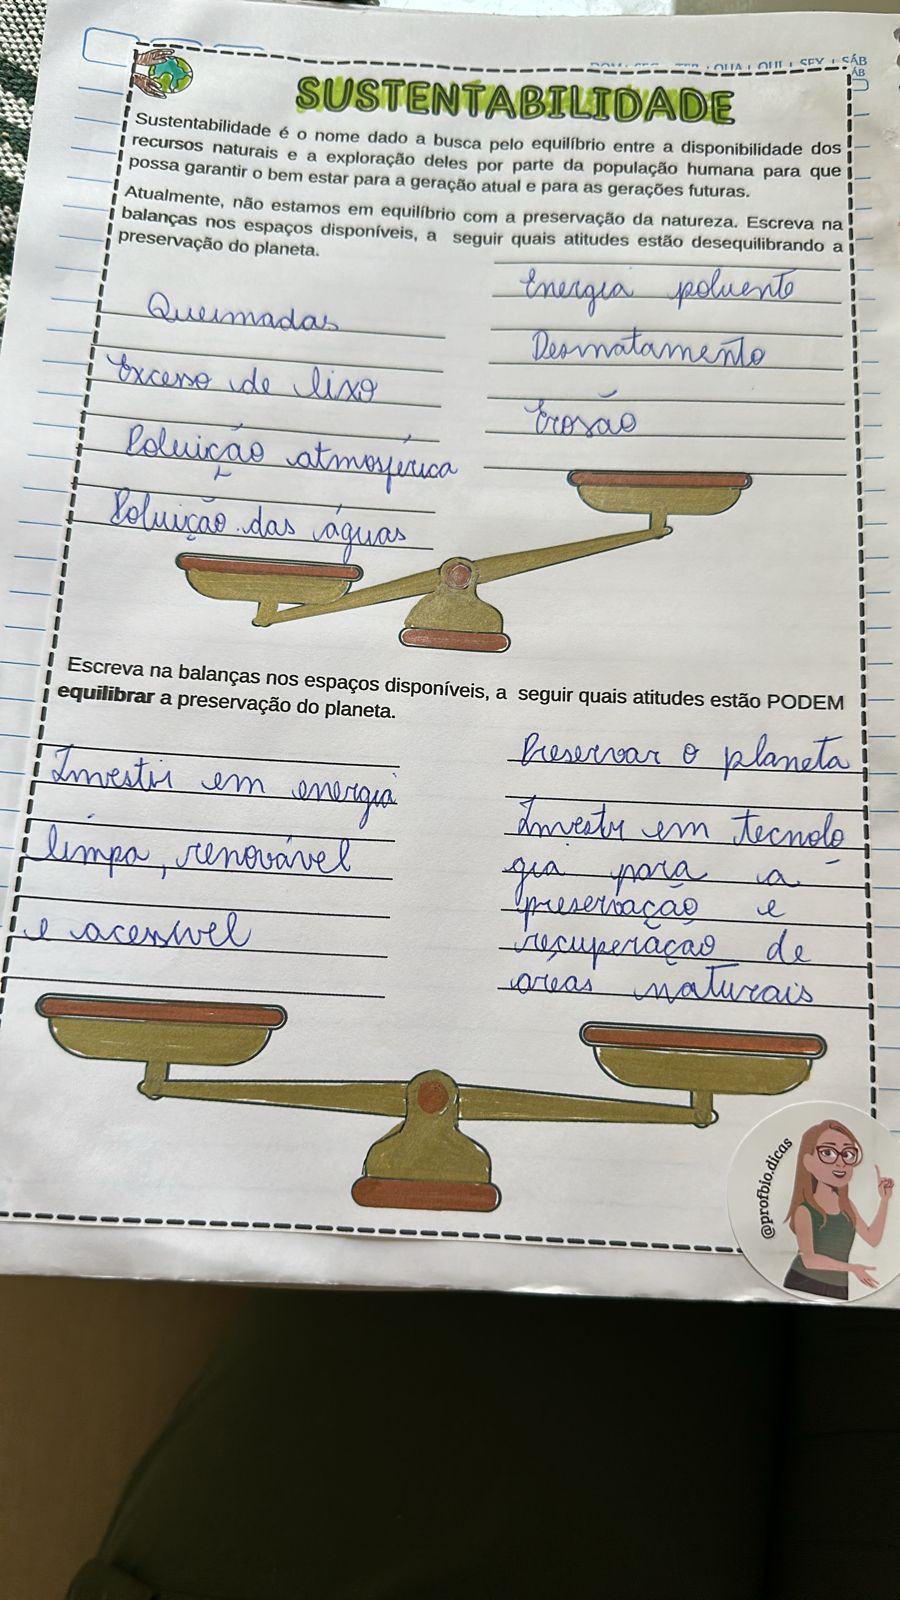 SEX SÁB
ÁB
SUSTENTABILIDADE
Sustentabilidade é o nome dado a busca pelo equilíbrio entre a disponibilidade dos
recursos naturais e a exploração deles por parte da população humana para que
possa garantir o bem estar para a geração atual e para as gerações futuras.
Atualmente, não estamos em equilíbrio com a preservação da natureza. Escreva na
balanças nos espaços disponíveis, a seguir quais atitudes estão desequilibrando a
preservação do planeta.
Queimadas
Excesso de lixo
Poluição atmosférica
Poluição das águas
Energia poluente
Desmatamento
Erosão
Escreva na balanças nos espaços disponíveis, a seguir quais atitudes estão PODEM
equilibrar a preservação do planeta.
Investir em energia
limpa, renovável
e acessível
Preservar o planeta
Investir em tecnolo
gia para a
preservação e
recuperação de
áreas naturais
@profbio.dicas